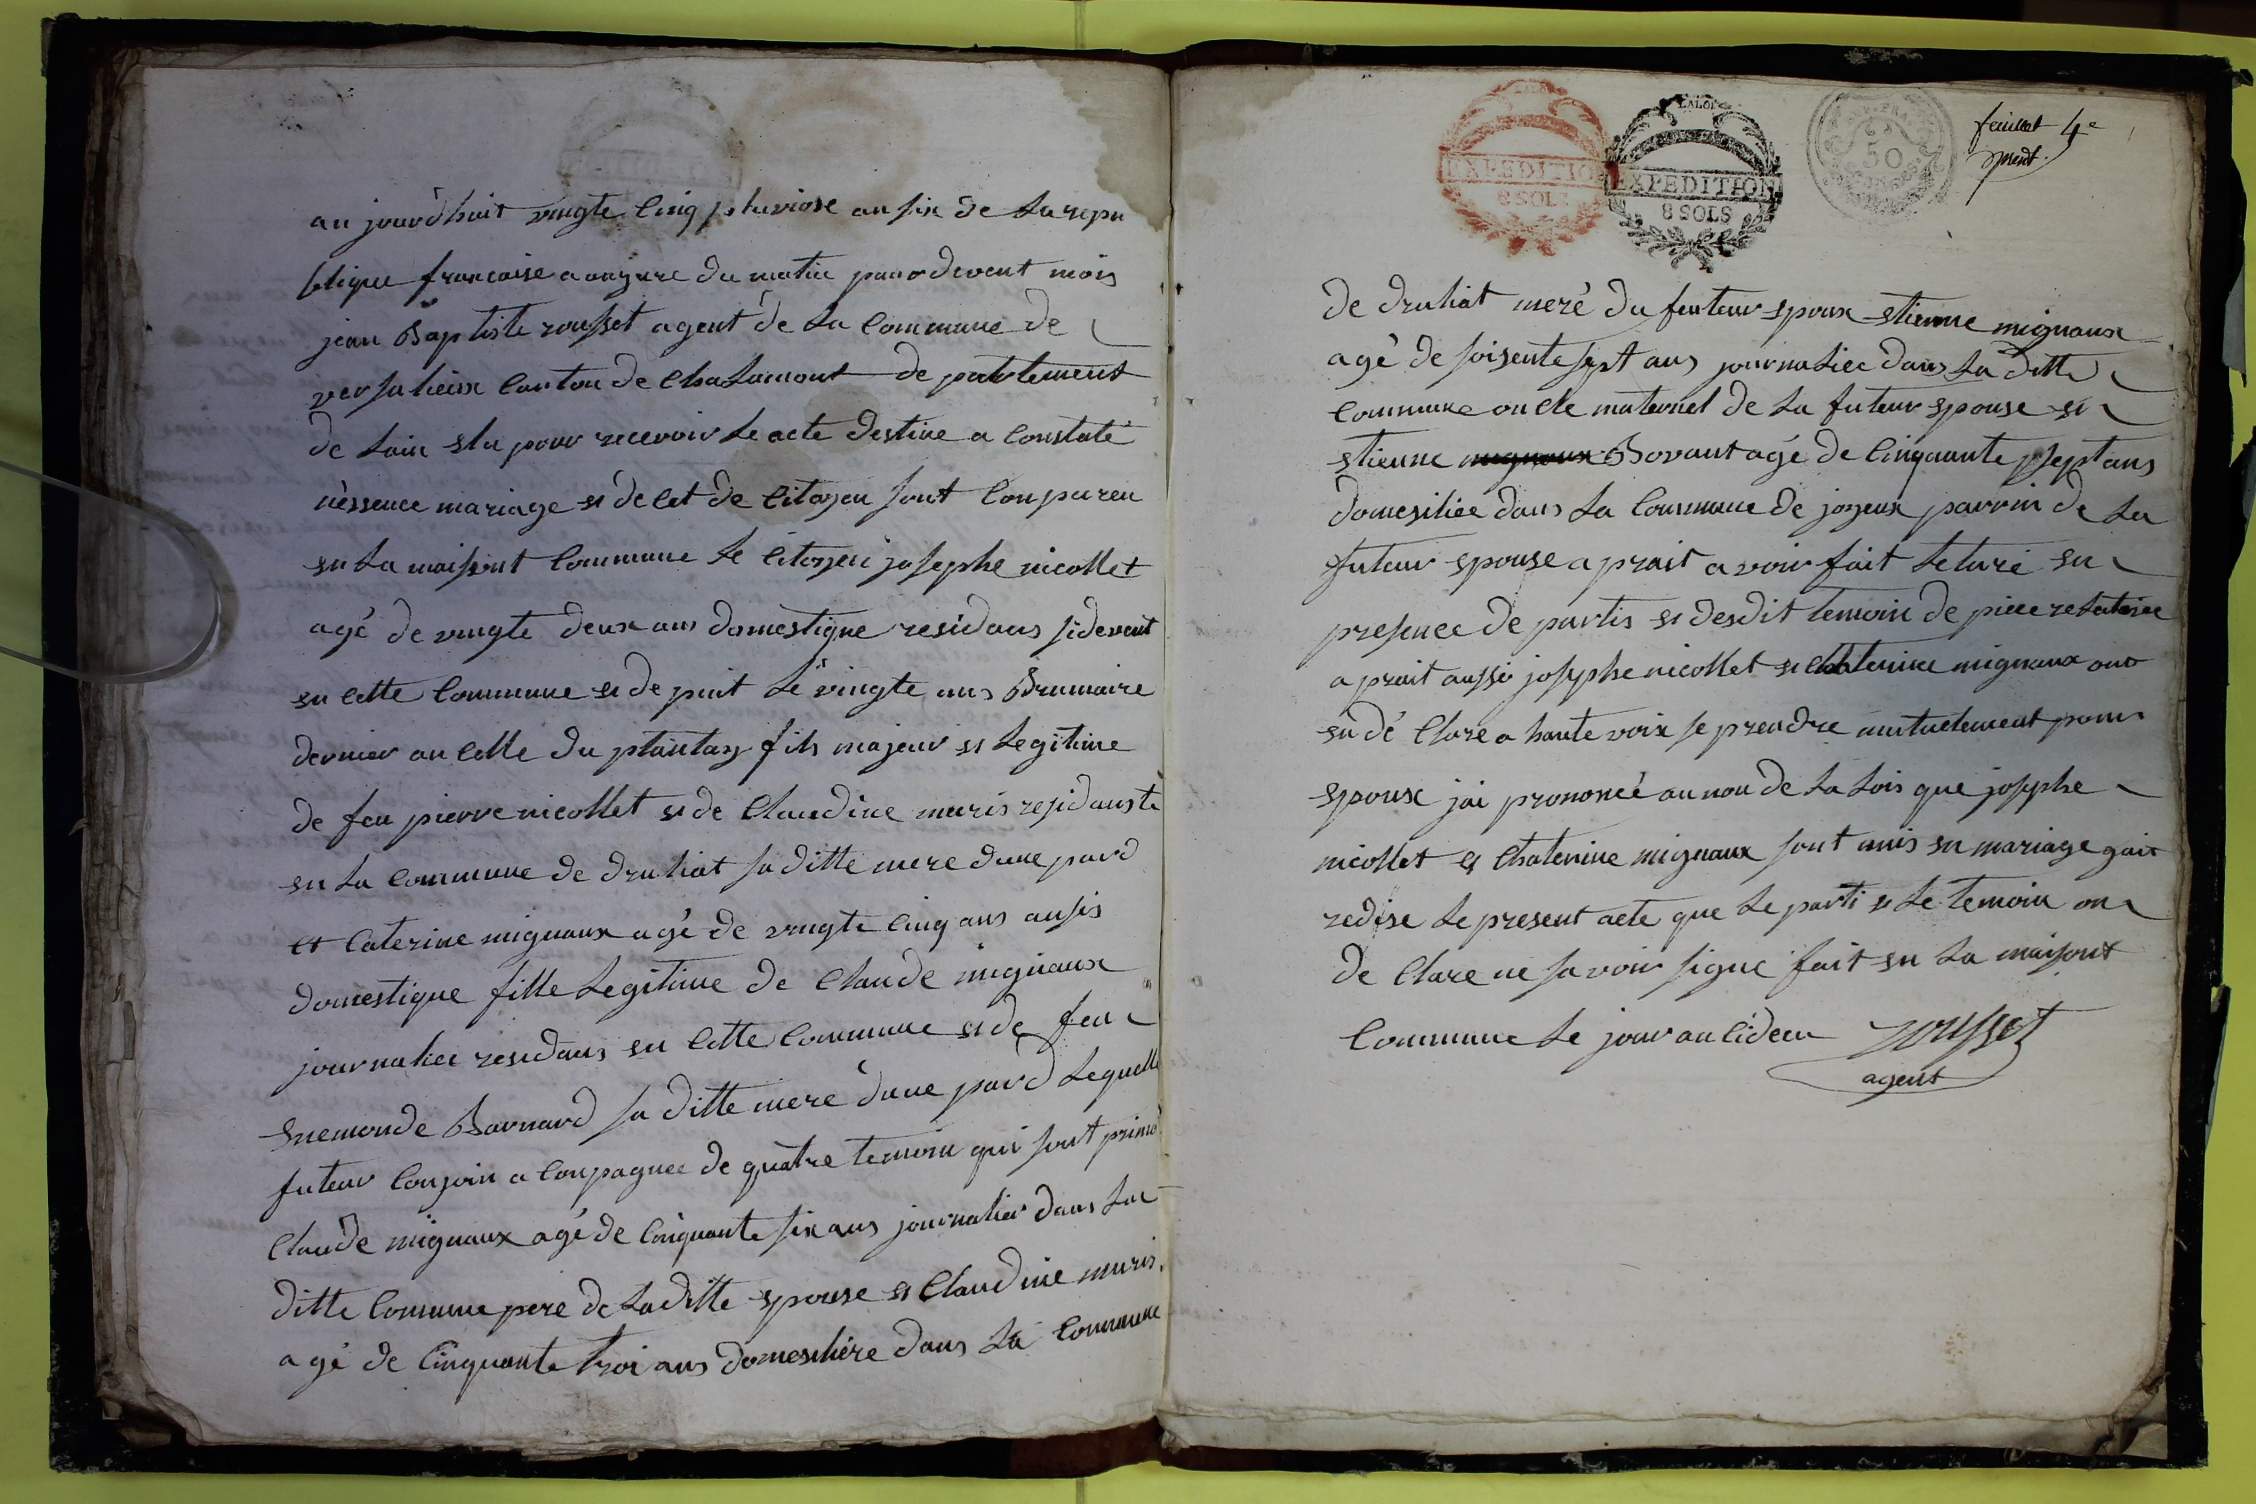 au jourd'huit vingte cinq pluviose an six de la repu
blique francaise a onzure du matin parerdevent mois
jean Baptiste rousset agent de la commune de
versalieux canton de chalamont de partement
de lain elu pour recevoir le acte destine a constaté
nèssence mariage et decet de citoyen sont conpareu
en la maisont commune le citoyen josephe nicollet
agé de vingte deux ans domestique residans sidevent
en cette commune et de puit le vingte ans Brumaire
dernier an celle du plantay fils majeur et legitime
de feu pierre nicollet et de Claudine muris residante
en la commune de druliat sa ditte mere dune pard
et Caterine mignaux agé de vingte cinq ans ausis
domestique fille legitime de Claude mignaux
journalier residans en cette commune et de feu
Enemonde Barnard sa ditte meré dune pard lequelle
futeur conjoin a conpagnee de quatre temoin qui sont primo
Claude mignaux agé de cinquante six ans journalier dans la
ditte commune pere de la ditte epouse et Claudine muris
agé de cinquante troi ans domesilière dans la commune
LALOI
EXPEDITION
8 SOLS
LALOI
EXPEDITION
8 SOLS
50
feuillet 4e
de druliat meré du feuteur epoux etienne mignaux
agé de soisente sept ans journaliee dans la ditte
commune oncle maternel de la futeur epouse et
etienne mignaux Bovant agé de cinquante sept ans
domesiliée dans la commune de joyeux parrin de la
futeur epouse aprait avoir fait leturé en
presence de partis et desdit temoin de piece relative
aprait aussi josephe nicollet et Chaterine mignaux ont
en dé clare a haute voix se prendre muituelement pour
epoux jai prononcé au non de la lois que josephe
nicollet et Chaterine mignaux sont unis en mariage gait
redise le present acte que le parti et le temoin on
de clare ne savoir signe fait en la maisont
commune le jour an cideu rousset
agent